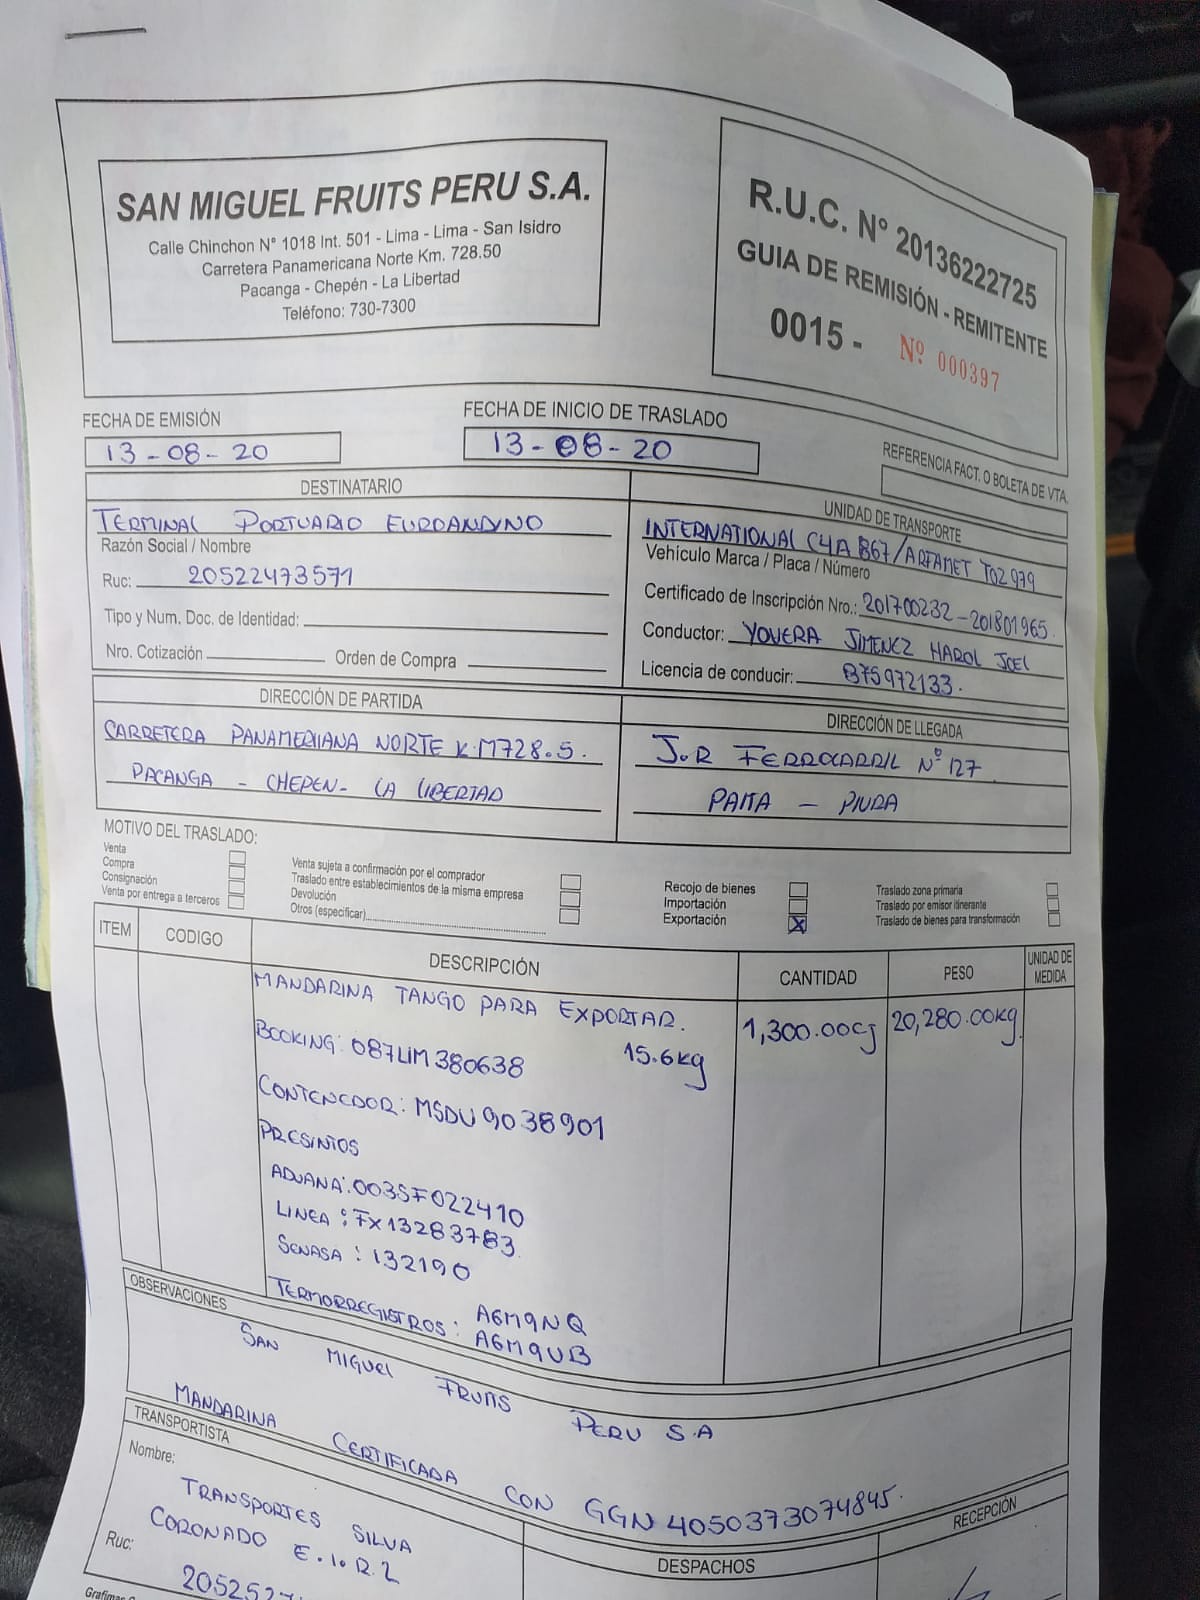 SAN MIGUEL FRUITS PERU S.A.
Calle Chinchon N° 1018 Int. 501 - Lima - Lima - San Isidro
Carretera Panamericana Norte Km. 728.50
Pacanga - Chepén - La Libertad
Teléfono: 730-7300
R.U.C. N° 20136222725
GUIA DE REMISIÓN - REMITENTE
0015 - Nº 000397
FECHA DE EMISIÓN
13-08-20
FECHA DE INICIO DE TRASLADO
13-08-20
REFERENCIA FACT. O BOLETA DE VTA.
DESTINATARIO
TERMINAL PORTUARIO EUROANDINO
Razón Social / Nombre
Ruc: 20522473571
Tipo y Num. Doc. de Identidad:
Nro. Cotización Orden de Compra
UNIDAD DE TRANSPORTE
INTERNATIONAL C4A 867/ARFAMET T02979
Vehículo Marca / Placa / Número
Certificado de Inscripción Nro.: 201700232-201801965.
Conductor: YOVERA JIMENEZ HAROL JOEL
Licencia de conducir: B75972133.
DIRECCIÓN DE PARTIDA
CARRETERA PANAMERIIANA NORTE K.M728.5.
PACANGA - CHEPEN- LA LIBERTAD
DIRECCIÓN DE LLEGADA
J.R FERROCARRIL Nº 127
PAITA - PIURA
MOTIVO DEL TRASLADO:
Venta
Compra
Consignación
Venta por entrega a terceros
Venta sujeta a confirmación por el comprador
Traslado entre establecimientos de la misma empresa
Devolución
Otros (especificar)
Recojo de bienes
Importación
Exportación X
Traslado zona primaria
Traslado por emisor itinerante
Traslado de bienes para transformación
ITEM CODIGO DESCRIPCIÓN CANTIDAD PESO UNIDAD DE MEDIDA
MANDARINA TANGO PARA EXPORTAR. 1,300.00cj 20,280.00kg.
15.6kg
BOOKING: 087LIM380638
CONTENEDOR: MSDU9038901
PRESINTOS
ADUANA: 003SF022410
LINEA : FX13283783.
SENASA : 132190
TERMORREGISTROS: A6M9NQ
A6M9UB
OBSERVACIONES
SAN MIGUEL FRUITS PERU S.A
MANDARINA CERTIFICADA CON GGN 4050373074845.
TRANSPORTISTA
Nombre:
TRANSPORTES SILVA
CORONADO E.I.R.L
Ruc:
DESPACHOS
RECEPCIÓN